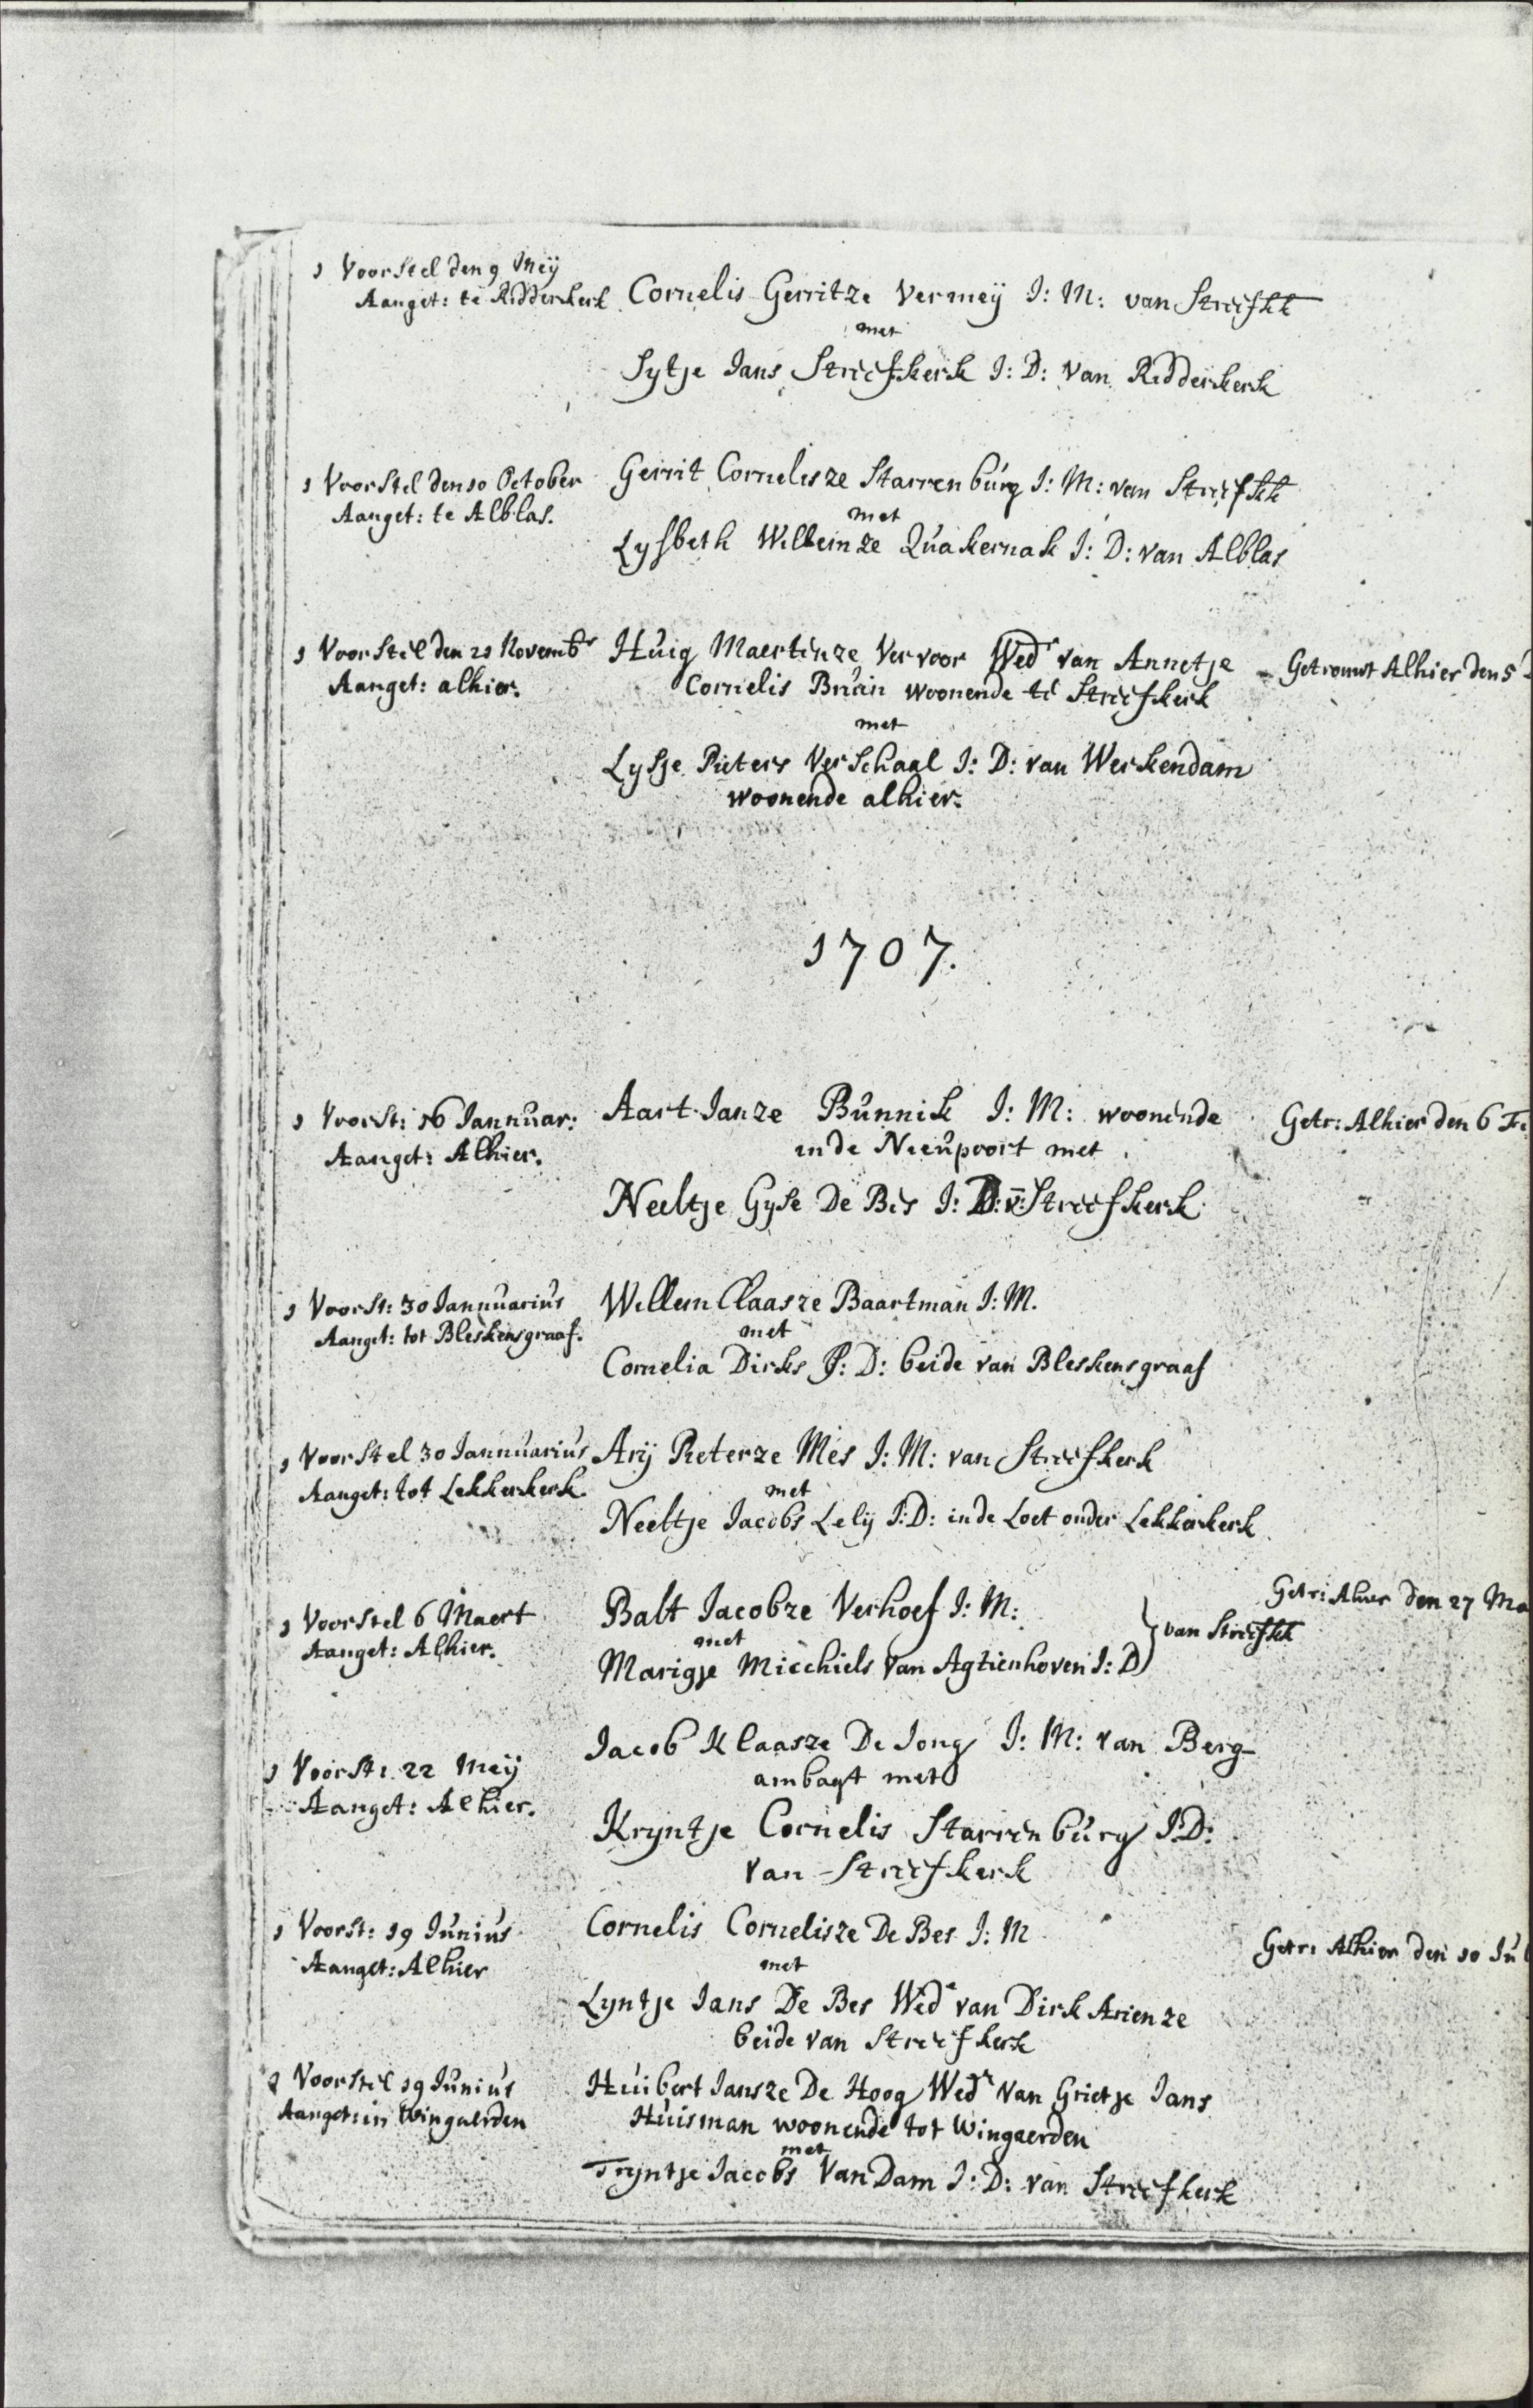 1 Voorstel den 9 Meij
Aanget: te Ridderkerk
Cornelis Gerritze Vermeij J: M: van Streefkk
met
Sytje Jans Streefkerk J: D: van Ridderkerk
1 Voorstel den 10 October
Aanget: te Alblas.
Gerrit Cornelisze Starrenburg J: M: van Streefkk
met
Lysbeth Willemze Quakernak J: D: van Alblas
1 Voorstel den 21 Novembr
Aanget: alhier.
Huig Maertenze Vervoor Wedr van Annetje
Cornelis Bruin woonende te Streefkerk
Getrouwt Alhier den 5
met
Lysje Pieters Verschaal J: D: van Werkendam
woonende alhier.
1707.
1 Voorst: 16 Jannuar:
Aanget: Alhier.
Aart Janze Bunnik J: M: woonende
in de Nieupoort met
Getr: Alhier den 6
Neeltje Gyse De Bes J: D: v: Streefkerk
1 Voorst: 30 Jannuarius
Aanget: tot Bleskensgraaf.
Willem Claasze Baartman J: M.
met
Cornelia Dirks J: D: beide van Bleskensgraaf
1 Voorstel 30 Jannuarius
Aanget: tot Lekkerkerk.
Arij Pieterze Mes J: M: van Streefkerk
met
Neeltje Jacobs Lelij J: D: in de Loet onder Lekkerkerk
1 Voorstel 6 Maert
Aanget: Alhier.
Balt Jacobze Verhoef J: M:
met
Marigje Miechiels van Agtienhoven J: D
van Streefkk
Getr: Alhier den 27 Ma
1 Voorst: 22 Meij
Aanget: Alhier.
Jacob Klaasze De Jong J: M: van Berg-
ambagt met
Kryntje Cornelis Starrenburg J: D:
van Streefkerk
1 Voorst: 19 Junius
Aanget: Alhier
Cornelis Cornelisze De Bes J: M
met
Getr: Alhier den 10 Jul
Lyntje Jans De Bes Wede van Dirk Arienze
beide van Streefkerk
1 Voorstel 19 Junius
Aanget: in Wingaerden
Huibert Jansze De Hoog Wedr van Grietje Jans
Huisman woonende tot Wingaerden
met
Tryntje Jacobs Van Dam J: D: van Streefkerk